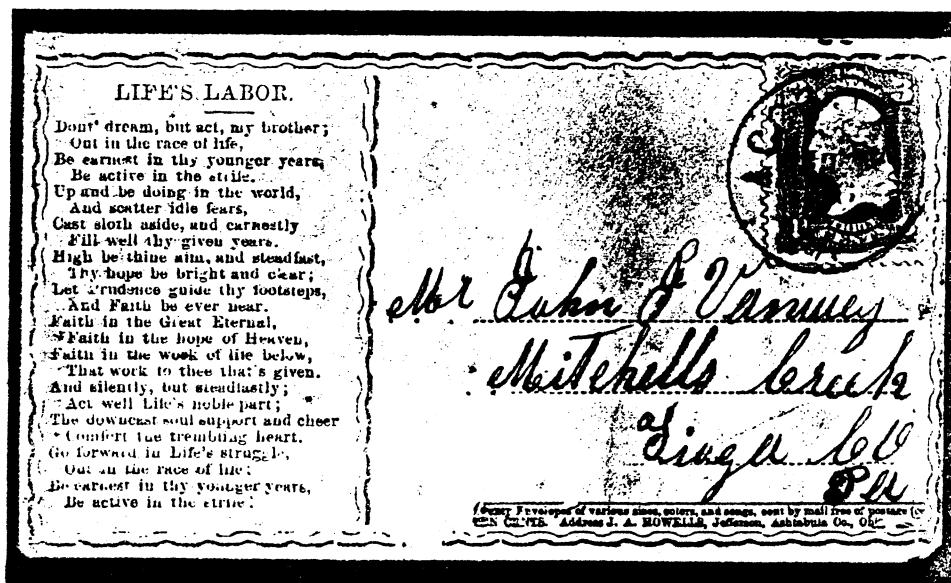 LIFE'S LABOR.
Dont' dream, but act, my brother;
Out in the race of life,
Be earnest in thy younger years;
Be active in the strife.
Up and be doing in the world,
And scatter idle fears,
Cast sloth aside, and earnestly
Fill well thy given years.
High be thine aim, and steadfast,
Thy hope be bright and clear;
Let Prudence guide thy footsteps,
And Faith be ever near.
Faith in the Great Eternal,
Faith in the hope of Heaven,
Faith in the work of life below,
That work to thee that's given.
And silently, but steadfastly;
Act well Life's noble part;
The downcast soul support and cheer
Comfort the trembling heart.
Go forward in Life's struggle,
Out in the race of life;
Be earnest in thy younger years,
Be active in the strife!
Mr John
Mitchells Creek
Tioga Co
Pa
Envelopes of various sizes, colors, and songs, sent by mail free of postage
TEN CENTS. Address J. A. HOWELLS, Jefferson, Ashtabula Co., Ohio